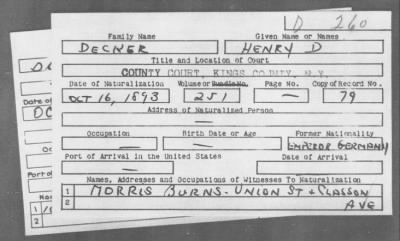 D 260
Family Name Given Name or Names
DECKER HENRY D
Title and Location of Court
COUNTY COURT, KINGS COUNTY, N.Y.
Date of Naturalization Volume or Bundle No. Page No. Copy of Record No.
OCT 16, 1893 251 — 79
Address of Naturalized Person
—
Occupation Birth Date or Age Former Nationality
— — EMPEROR GERMANY
Port of Arrival in the United States Date of Arrival
— —
Names, Addresses and Occupations of Witnesses To Naturalization
1 MORRIS BURNS - UNION ST + CLASSON
2 AVE